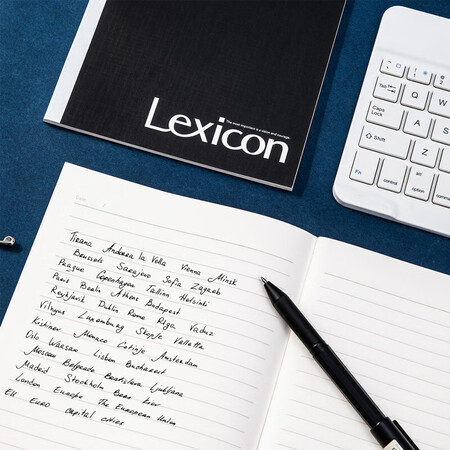 Lexicon
The most important is a vision and courage.
Tirana Andorra la Vella Vienna Minsk
Brussels Sarajevo Sofia Zagreb
Prague Copenhagen Tallinn Helsinki
Paris Berlin Athens Budapest
Reykjavik Dublin Rome Riga Vaduz
Vilnyus Luxemburg Skopje Valletta
Kishinev Monaco Cetinje Amsterdam
Oslo Warsaw Lisbon Bucharest
Moscow Belgrade Bratislava Ljubljana
Madrid Stockholm Bern Kiev
London Europe The European Union
EU Euro capital cities
Tab
Q
W
Caps Lock
A
S
Shift
Z
Fn
control
option
command
alt